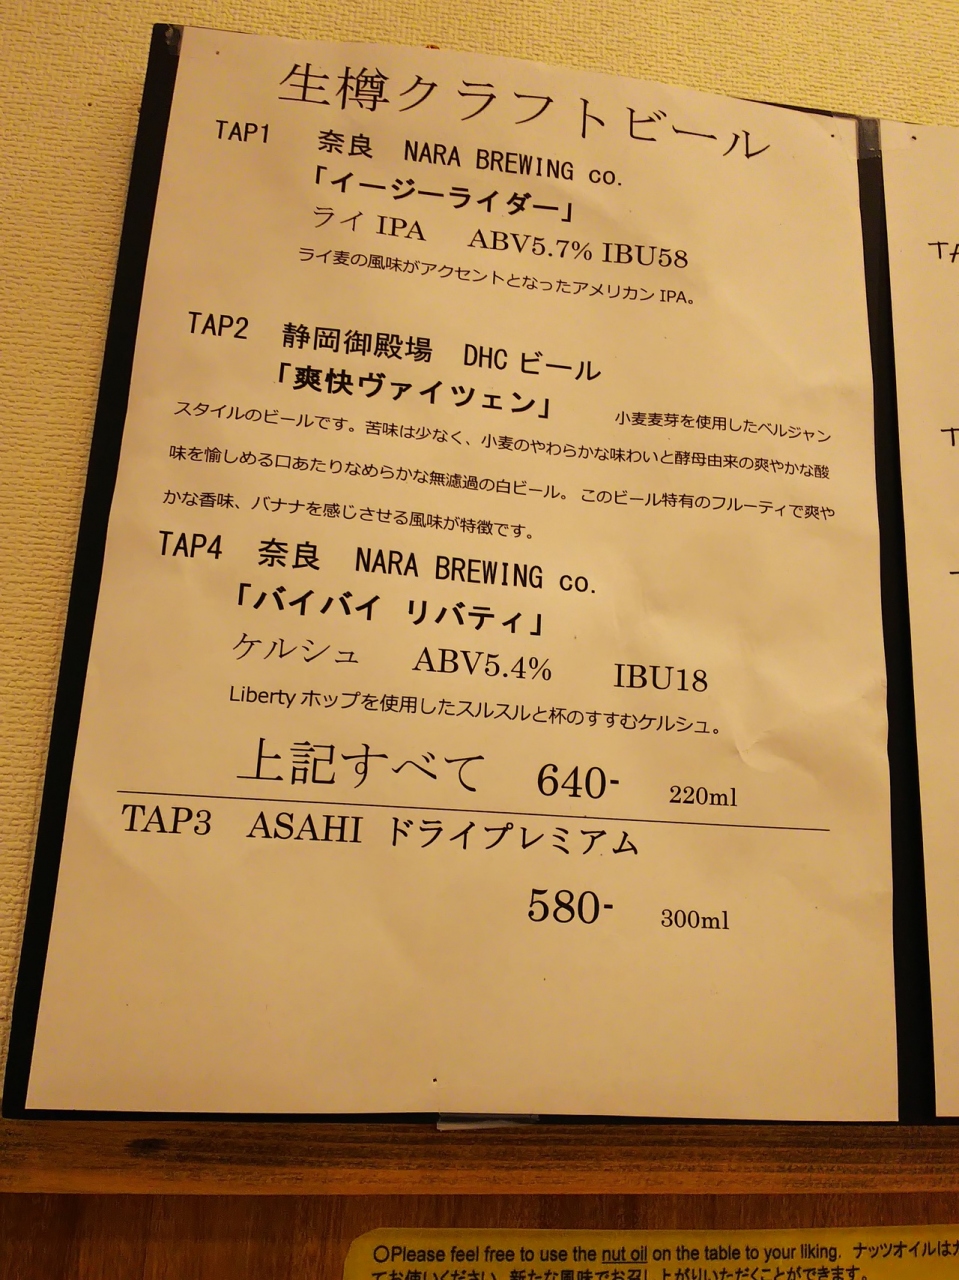 生樽クラフトビール
TAP1 奈良 NARA BREWING co.
「イージーライダー」
ライ IPA ABV5.7% IBU58
ライ麦の風味がアクセントとなったアメリカン IPA。
TAP2 静岡御殿場 DHC ビール
「爽快ヴァイツェン」 小麦麦芽を使用したベルジャン
スタイルのビールです。苦味は少なく、小麦のやわらかな味わいと酵母由来の爽やかな酸
味を愉しめる口あたりなめらかな無濾過の白ビール。このビール特有のフルーティで爽や
かな香味、バナナを感じさせる風味が特徴です。
TAP4 奈良 NARA BREWING co.
「バイバイ リバティ」
ケルシュ ABV5.4% IBU18
Liberty ホップを使用したスルスルと杯のすすむケルシュ。
上記すべて 640- 220ml
TAP3 ASAHI ドライプレミアム
580- 300ml
〇Please feel free to use the nut oil on the table to your liking. ナッツオイルは
てお使いください。新たな風味でお召し上がりいただくことができます。